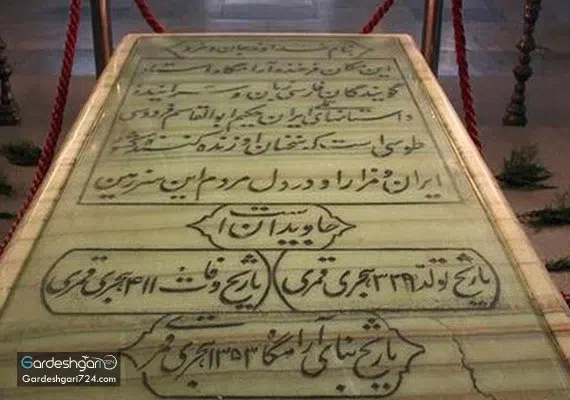 بنام خداوند جان و خرد
این مکان فرخنده آرامگاه استاد
گویندگان فارسی زبان و سراینده
داستانهای ملی ایران حکیم ابوالقاسم فردوسی
طوسی است که سخنان او زنده کننده کشور
ایران و مزار او در دل مردم این سرزمین
جاویدان است
تاریخ تولد ۳۲۹ هجری قمری
تاریخ وفات ۴۱۱ هجری قمری
تاریخ بنای آرامگاه ۱۳۵۳ هجری قمری
Gardeshgari
Gardeshgari724.com